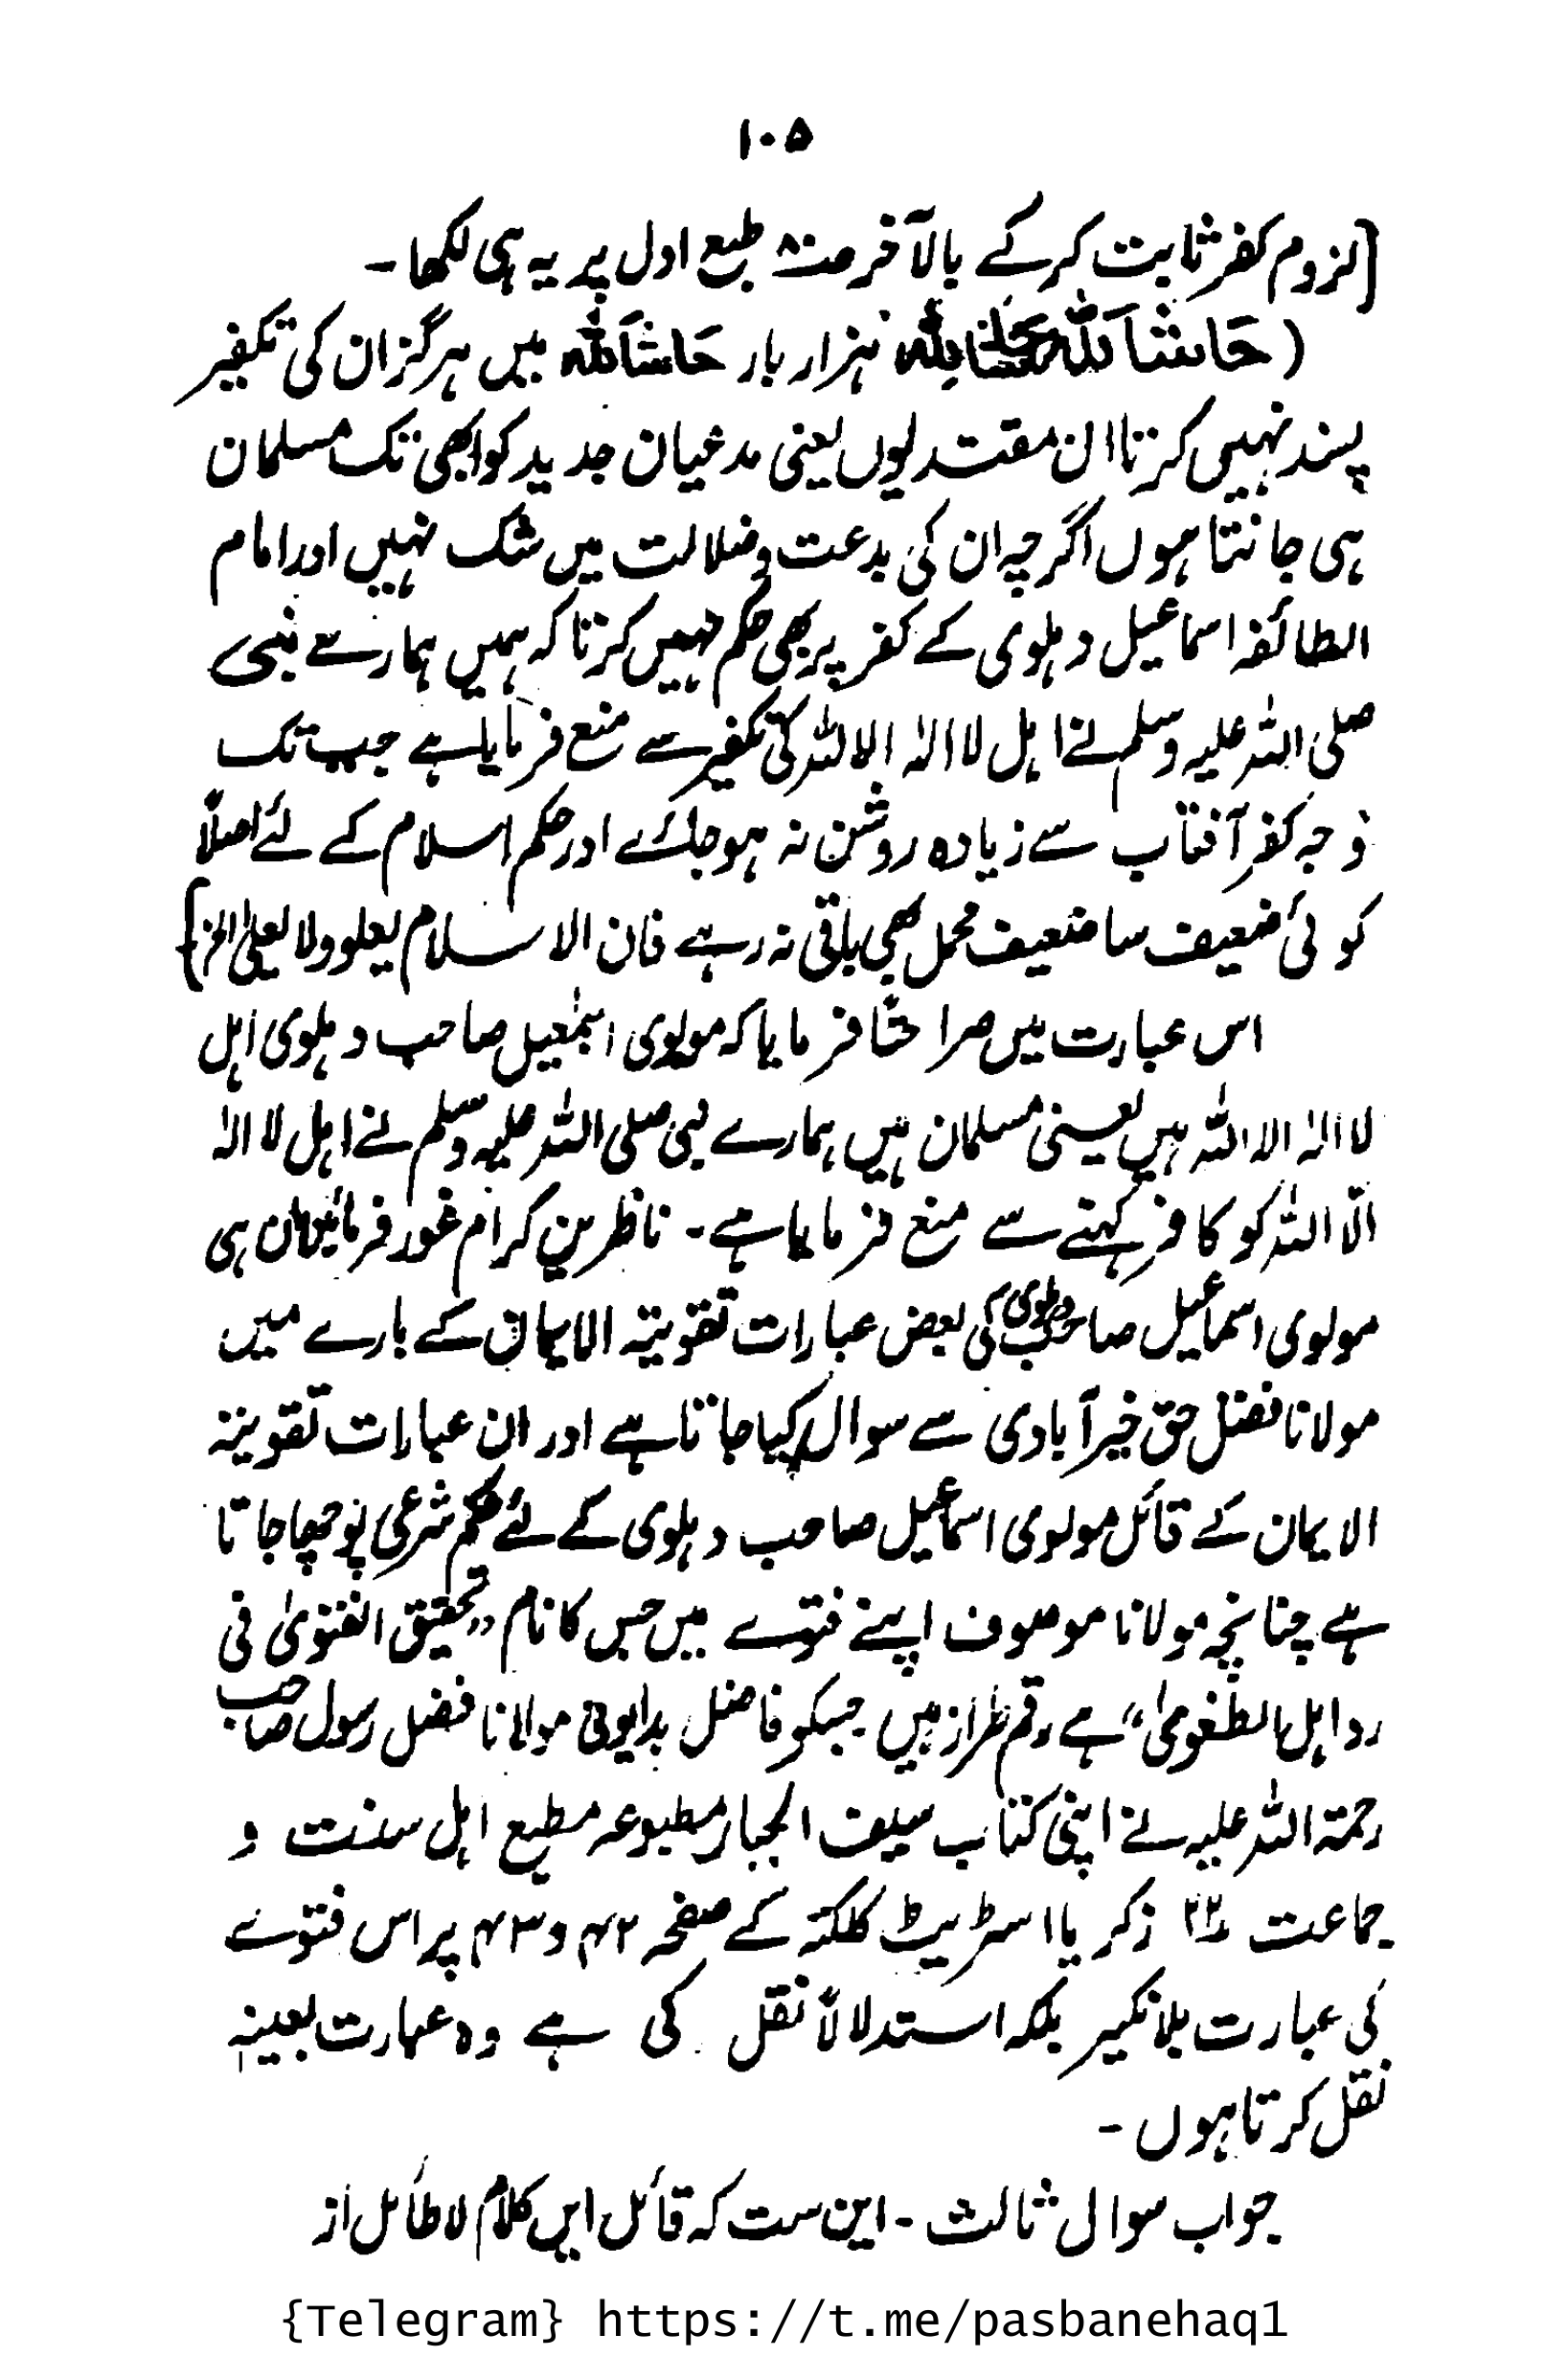 ۱۰۵
[لزوم کفر ثابت کرکے بالآخر صنہ ۸ طبع اول پر یہ ہی لکھا۔
(حَاشَا لِلّٰہ حَاشَا لِلّٰہ ہزار ہزار بار حَاشَا لِلّٰہ میں ہرگز ان کی تکفیر
پسند نہیں کرتا ان مقتدیوں یعنی مدعیان جدید کو ابھی تک مسلمان
ہی جانتا ہوں اگرچہ ان کی بدعت وضلالت میں شک نہیں اور امام
الطائفہ اسماعیل دہلوی کے کفر پر بھی حکم نہیں کرتا کہ ہمیں ہمارے نبی
صلی اللہ علیہ وسلم نے اہل لا الہٰ الا اللہ کی تکفیر سے منع فرمایا ہے جب تک
وجہ کفر آفتاب سے زیادہ روشن نہ ہو جائے اور حکم اسلام کے لئے اصلاً
کوئی ضعیف سا ضعیف محمل بھی باقی نہ رہے فان الاسلام یعلو ولا یعلیٰ الخ}
اس عبارت میں صراحتاً فرمایا کہ مولوی اسمٰعیل صاحب دہلوی اہل
لا الہٰ الا اللہ ہیں یعنی مسلمان ہیں ہمارے نبی صلی اللہ علیہ وسلم نے اہل لا الہٰ
الّا اللہ کو کافر کہنے سے منع فرمایا ہے۔ ناظرین کرام غور فرمائیں ان ہی
مولوی اسماعیل صاحب دہلوی کی بعض عبارات تقویتہ الایمان کے بارے میں
مولانا فضل حق خیرآبادی سے سوال کیا جاتا ہے اور ان عبارات تقویتہ
الایمان کے قائل مولوی اسماعیل صاحب دہلوی کے لئے حکم شرعی پوچھا جاتا
ہے چنانچہ مولانا موصوف اپنے فتوے میں جس کا نام "تحقیق الفتویٰ فی
رد اہل الطغویٰ" ہے رقم طراز ہیں جسکو فاضل بدایونی مولانا فضل رسول صاحب
رحمۃ اللہ علیہ نے اپنی کتاب سیف الجبار مطبوعہ مطبع اہل سنت و
جماعت ۲۲ زکریا اسٹریٹ کلکتہ کے صفحہ ۴۲ و ۴۳ پر اس فتوے
کی عبارت بلا نکیر بلکہ استدلالاً نقل کی ہے وہ عبارت بعینہٖ
نقل کرتا ہوں۔
جواب سوال ثالث۔ این ست کہ قائل ایں کلام لاطائل از
{Telegram} https://t.me/pasbanehaq1